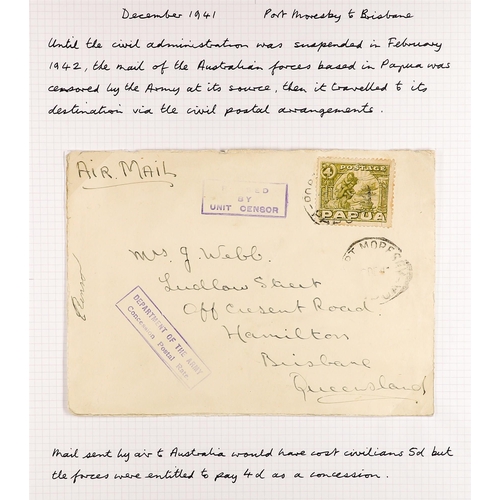 December 1941 Port Moresby to Brisbane
Until the civil administration was suspended in February
1942, the mail of the Australian forces based in Papua was
censored by the Army at its source, then it travelled to its
destination via the civil postal arrangements.
AIR MAIL
BY
UNIT CENSOR
POSTAGE
PAPUA
PORT MORESBY
Mrs J Webb.
Ludlow Street
Off Cresent Road.
Hamilton
Brisbane
Queensland
DEPARTMENT OF THE ARMY
Concession Postal Rate
Mail sent by air to Australia would have cost civilians 5d but
the forces were entitled to pay 4d as a concession.